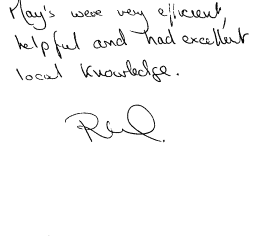 May's were very efficient,
helpful and had excellent
local knowledge.